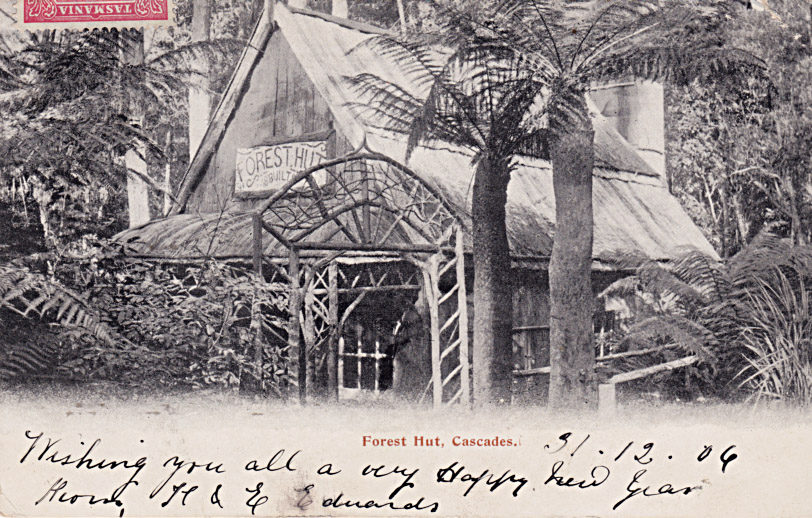 TASMANIA
FOREST HUT
BUILT
Forest Hut, Cascades.
31.12.06
Wishing you all a very Happy New Year
From, H & E Edwards